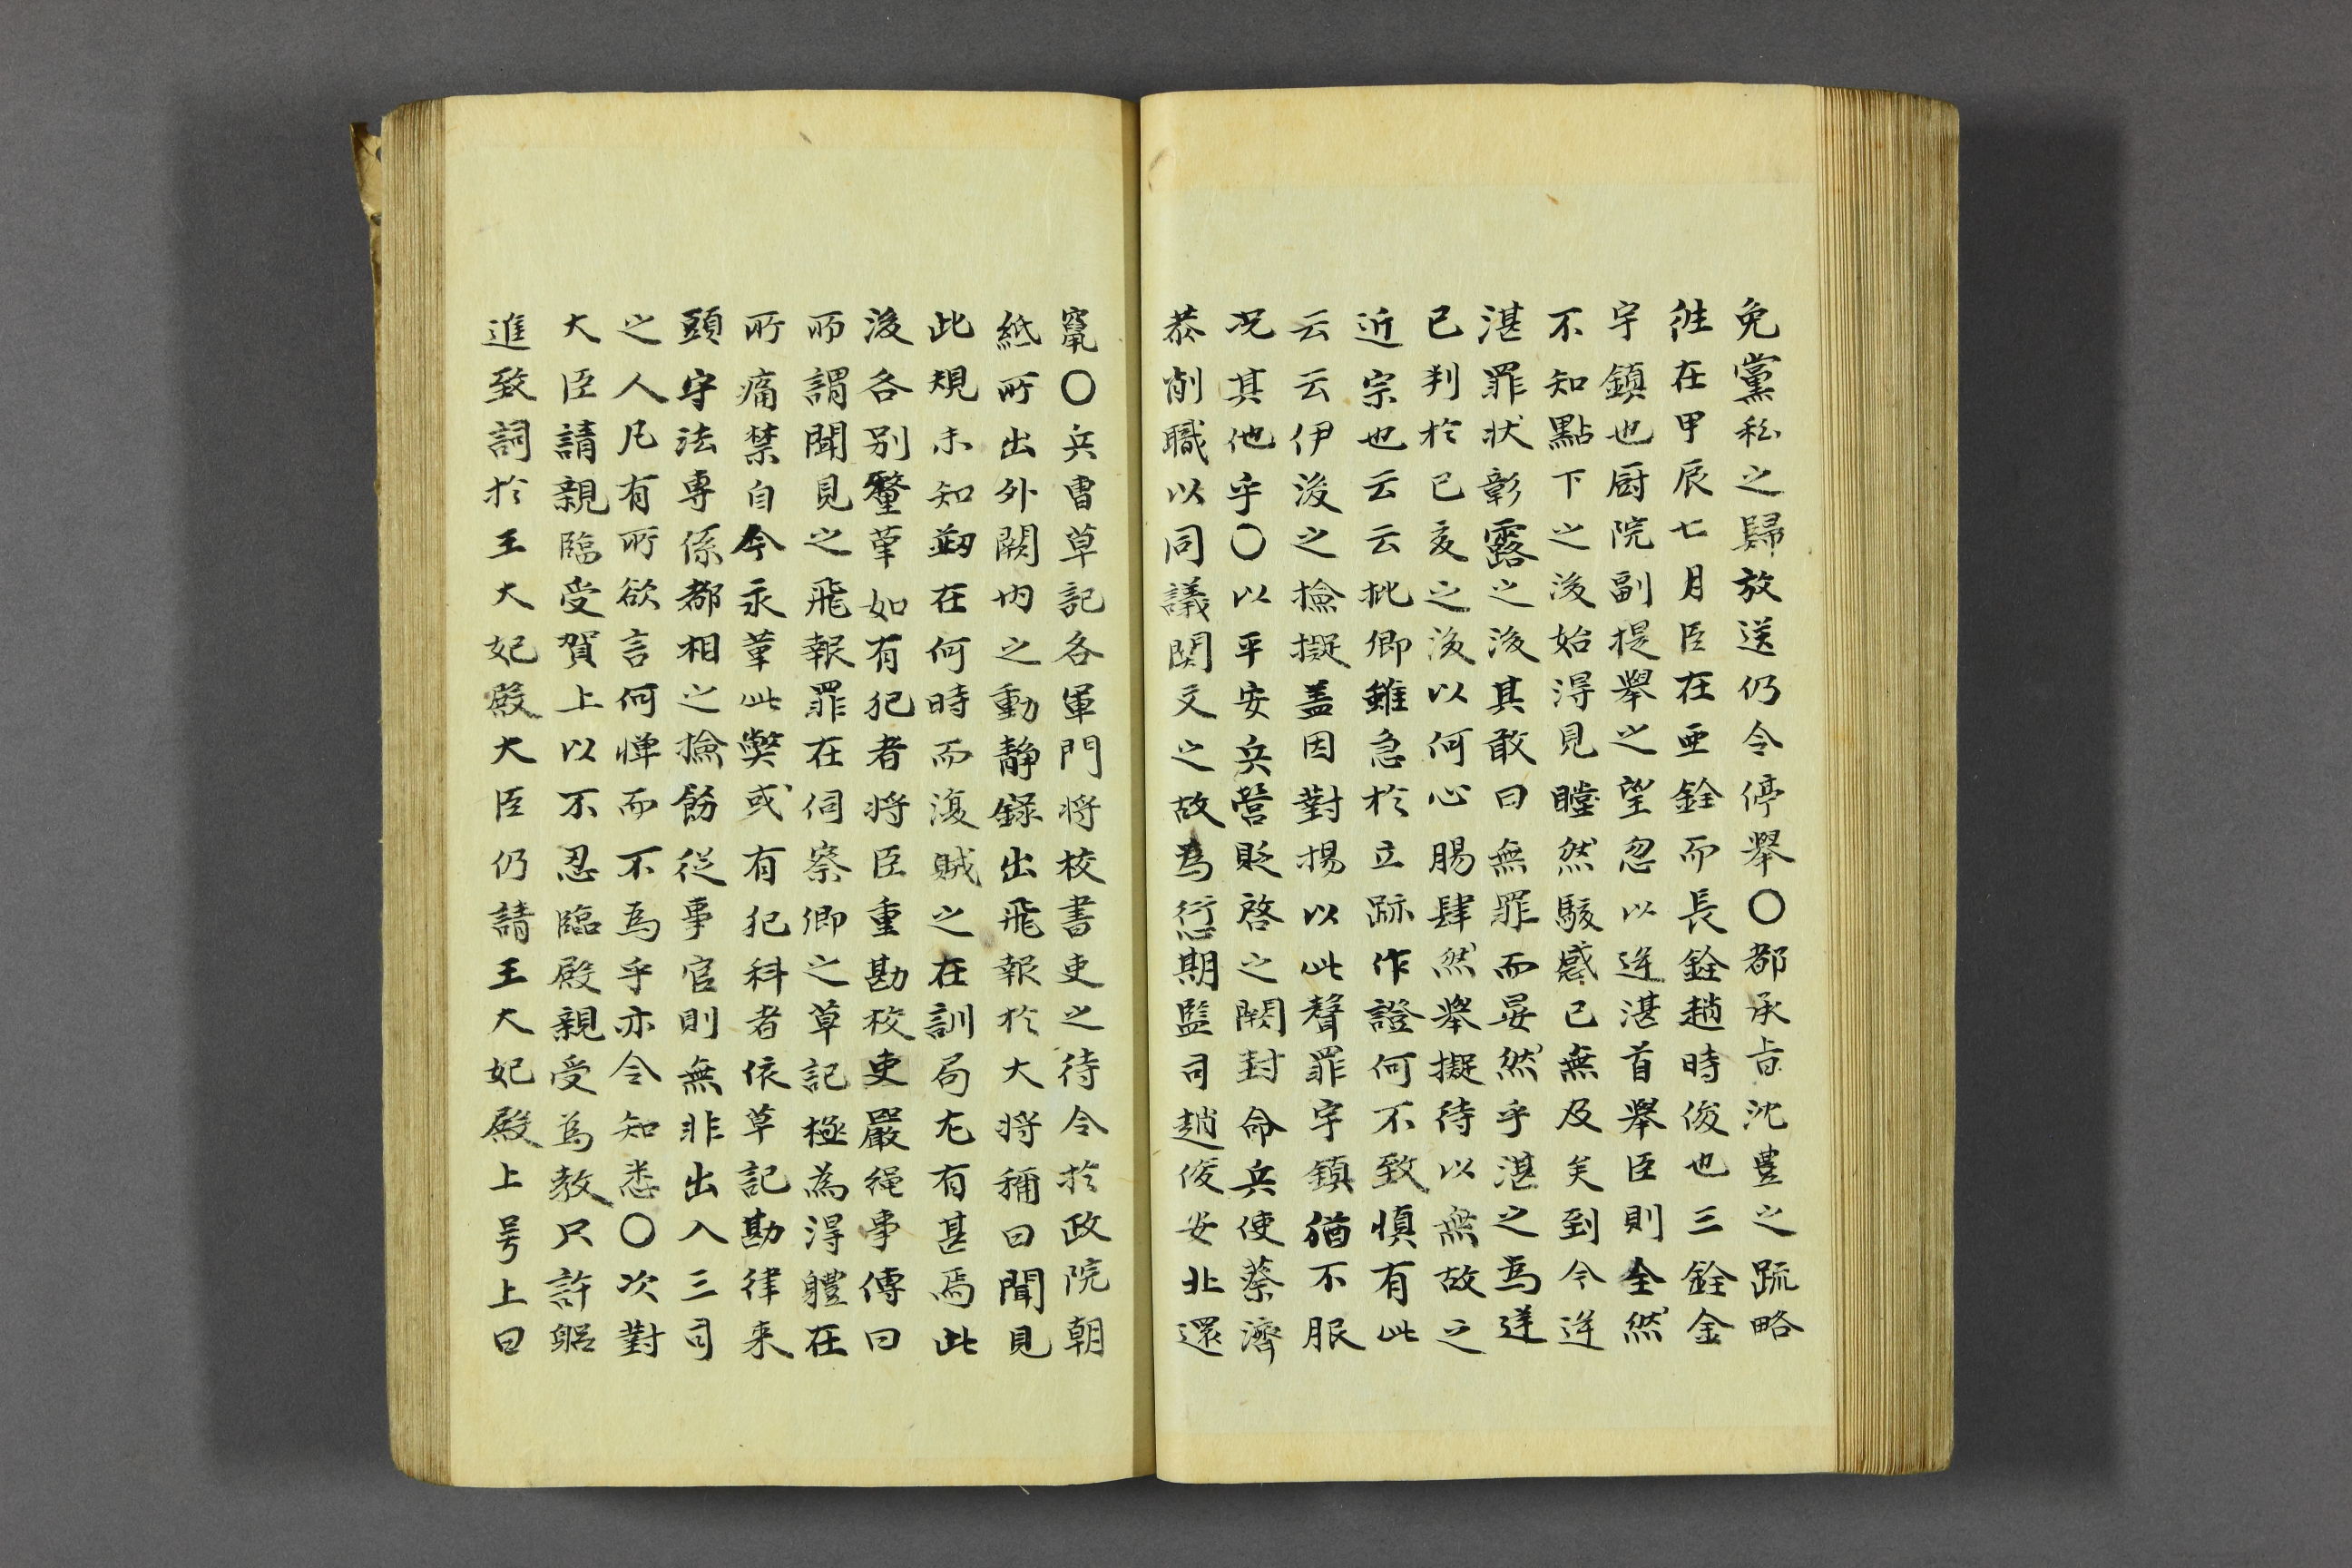 免黨私之歸放送仍令停擧〇都承旨沈豊之疏略
徃在甲辰七月臣在亜銓而長銓趙時俊也三銓金
宇鎮也厨院副提擧之望忽以逆湛首擧臣則全然
不知點下之後始淂見瞠然駭惑已無及矣到今逆
湛罪状彰露之後其敢曰無罪而晏然乎湛之爲逆
已判扵已亥之後以何心腸肆然擧擬待以無故之
近宗也云云批卿雖急扵立跡作證何不致慎有此
云云伊後之撿擬盖因對揚以此聲罪宇鎮猶不服
况其他乎〇以平安兵營貶啓之闕封命兵使蔡濟
恭削職以同議関文之故爲愆期監司趙俊安北還
竄〇兵曺草記各軍門将校書吏之待令扵政院朝
紙所出外闕内之動静錄出飛報扵大将稱曰聞見
此規未知刱在何時而復賊之在訓局尤有甚焉此
後各别釐革如有犯者将臣重勘校吏嚴繩事傳曰
所謂聞見之飛報罪在伺察卿之草記極為淂軆在
所痛禁自今永革此獘或有犯科者依草記勘律来
頭守法專係都相之撿飭從事官則無非出入三司
之人凡有所欲言何憚而不爲乎亦令知悉〇次對
大臣請親臨受賀上以不忍臨殿親受爲教只許躬
進致詞扵王大妃殿大臣仍請王大妃殿上号上曰